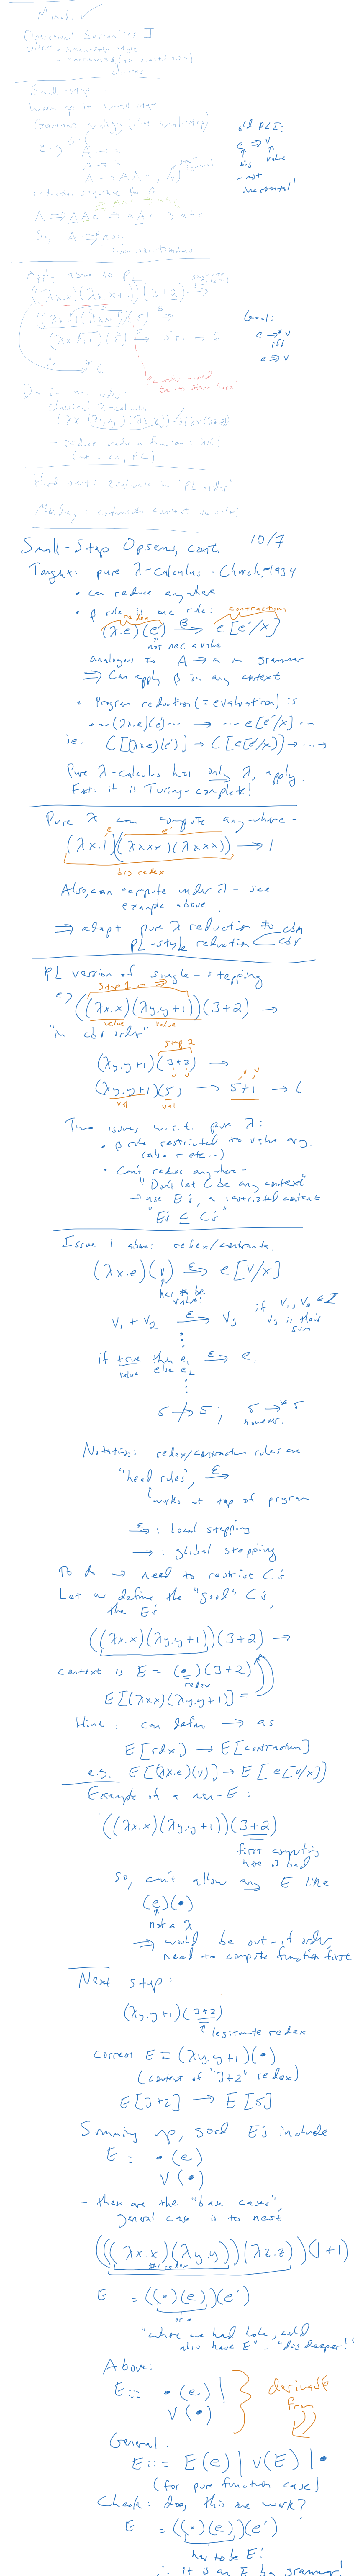 Monads ✓
Operational Semantics II
Outline • Small-step style
• environments (no substitution)
closures
Small-step
Warm-up to small-step
Grammar analogy (then small-step)
e.g. G =
A → a
A → b
A → AAc, A start symbol
reduction sequence for G
A ⇒ AAc ⇒ aAc ⇒ abc
So, A ⇒* abc
no nonterminals
old PL I:
e ⇒ v
big value
- not incremental!
Apply above to PL
((λx.x)(λx.x+1))(3+2) →
((λx.x)(λx.x+1))(5) →
(λx.x+1)(5) → 5+1 → 6
∴ →* 6
PL order would be to start here!
Goal:
e →* v
iff
e ⇒ v
Do in any order:
classical λ-calculus
(λx.(λy.y)(λz.z)) → (λx.(λz.z))
- reduce under a function is OK!
(not in any PL)
Hard part: evaluate in "PL order"
Monday: evaluation contexts to solve!
Small-Step Opsem, cont 10/7
Target: pure λ-calculus - Church, ~1934
• can reduce anywhere
• β rule is one rule:
redex contractum
(λx.e)(e') →β e[e'/x]
not nec. a value
analogous to A → a in grammar
⇒ Can apply β in any context
• Program reduction (= evaluation) is
... (λx.e)(e') ... → ... e[e'/x] ...
ie. C[(λx.e)(e')] → C[e[e'/x]] → ... →
Pure λ-calculus has only λ, apply.
Fact: it is Turing-complete!
Pure λ can compute anywhere -
e e'
(λx.1)((λx.xx)(λx.xx)) → 1
big redex
Also, can compute under λ - see
example above
⇒ adapt pure λ reduction to cbn
PL-style reduction cbv
PL version of single-stepping
step 1 in →
eg ((λx.x)(λy.y+1))(3+2) →
value value
"in cbv order"
step 2
(λy.y+1)(3+2) →
v v
(λy.y+1)(5) → 5+1 → 6
val val
Two issues, w.r.t. pure λ:
• β rule restricted to value arg.
(also + etc..)
• Can't reduce anywhere -
"Don't let C be any context"
→ use E's, a restricted context
"E's ⊆ C's"
Issue 1 above: redex/contracta.
(λx.e)(v) →ε e[v/x]
has to be value!
v₁ + v₂ →ε v₃ if v₁, v₂ ∈ Z
v₃ is their sum
⋮
if true then e₁ else e₂ →ε e₁
value
⋮
5 ↛ 5; 5 →* 5
however.
Notation: redex/contractum rules are
"head rules", →ε
works at top of program
→ε : local stepping
→ : global stepping
To do → need to restrict C's
Let us define the "good" C's,
the E's
((λx.x)(λy.y+1))(3+2) →
context is E = (•)(3+2)
redex
E[(λx.x)(λy.y+1)] =
Hint: can define → as
E[rdx] → E[contractum]
e.g. E[(λx.e)(v)] → E[e[v/x]]
Example of a non-E:
((λx.x)(λy.y+1))(3+2)
first computing here is bad
So, can't allow any E like
(e)(•)
not a λ
⇒ would be out-of order,
need to compute function first!
Next step:
(λy.y+1)(3+2)
legitimate redex
correct E = (λy.y+1)(•)
(context of "3+2" redex)
E[3+2] → E[5]
Summing up, good E's include
E = •(e)
v(•)
- these are the "base cases",
general case is to nest
(((λx.x)(λy.y))(λz.z))(1+1)
E = ((•)(e))(e')
"where we had hole, could
also have E" - "dig deeper!"
Above:
E ::= •(e) |
v(•)
derivable from
General:
E ::= E(e) | v(E) | •
(for pure function case)
Check: does this one work?
E = ((•)(e))(e')
has to be E!
∴ it is an E by grammar!